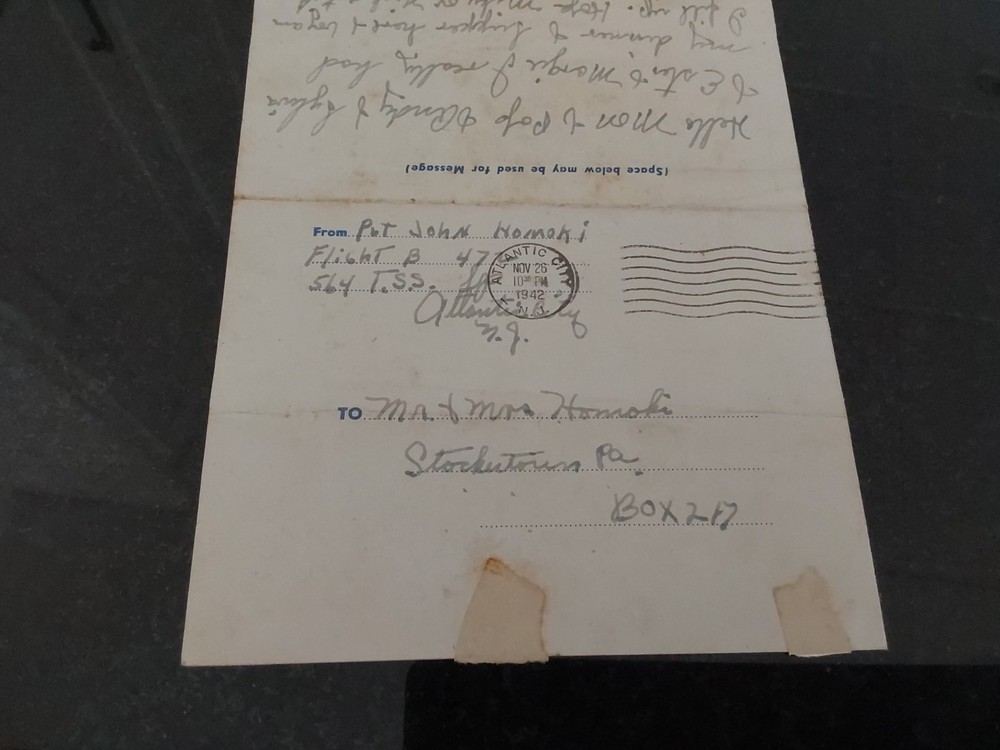 From Pvt John Homoki
Flight B 47
564 T.S.S.
Atlantic City
N.J.
ATLANTIC CITY
NOV 26
10 30 PM
1942
N.J.
TO Mr. & Mrs Homoki
Stockertown Pa.
BOX 217
(Space below may be used for Message)
Hello Mom & Pop & Andy & Sylvia
& Ester & Margie I really had
my dinner & supper here &
I fill up. Hope